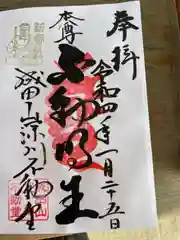 奉拝
令和四年一月二十五日
本尊
不動明王
成田山深川不動堂